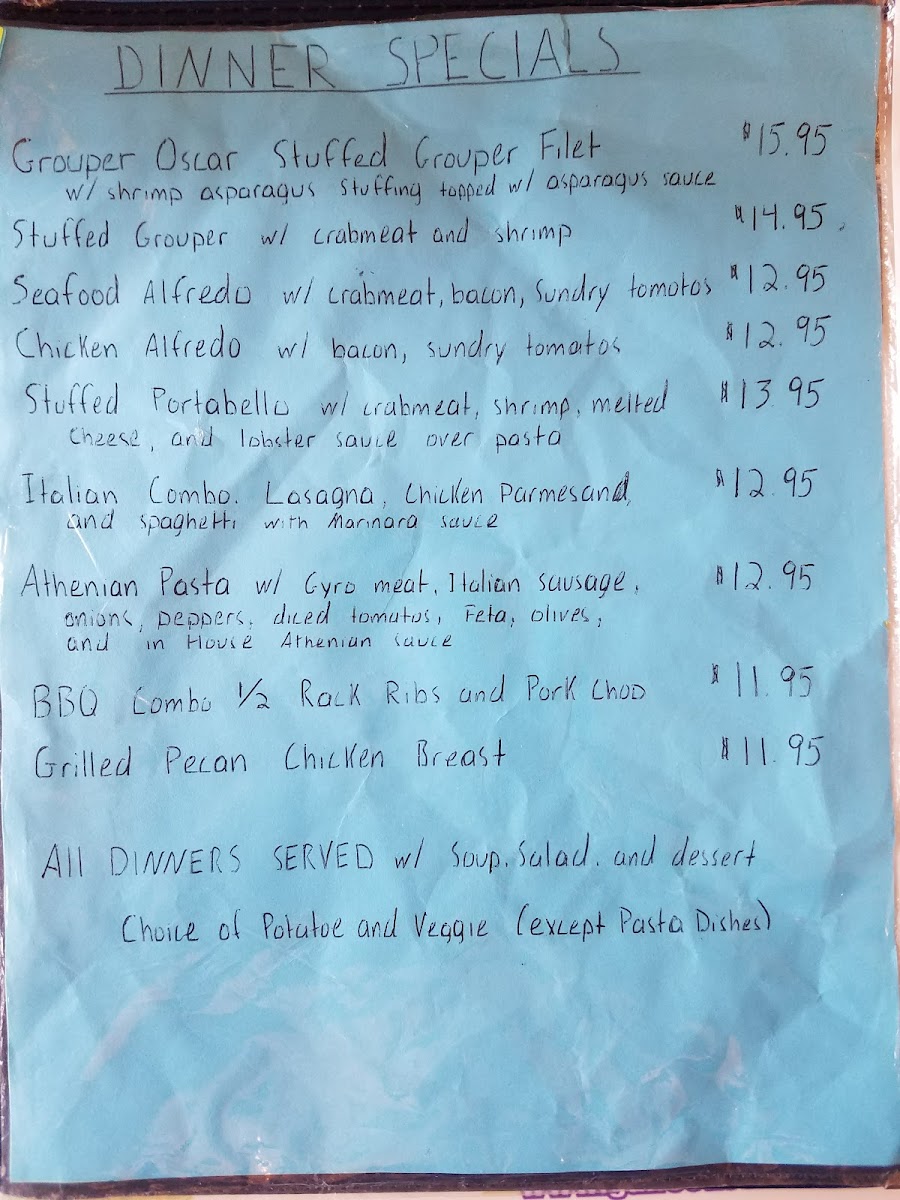 DINNER SPECIALS
Grouper Oscar Stuffed Grouper Filet $15.95
w/ shrimp asparagus stuffing topped w/ asparagus sauce
Stuffed Grouper w/ crabmeat and shrimp $14.95
Seafood Alfredo w/ crabmeat, bacon, sundry tomotos $12.95
Chicken Alfredo w/ bacon, sundry tomatos $12.95
Stuffed Portabello w/ crabmeat, shrimp, melted $13.95
cheese, and lobster sauce over pasta
Italian Combo. Lasagna, Chicken Parmesand, $12.95
and spaghetti with Marinara sauce
Athenian Pasta w/ Gyro meat, Italian sausage, $12.95
onions, peppers, diced tomatos, Feta, olives,
and in House Athenian sauce
BBQ Combo 1/2 Rack Ribs and Pork Chop $11.95
Grilled Pecan Chicken Breast $11.95
All DINNERS SERVED w/ Soup, Salad, and dessert
Choice of Potatoe and Veggie (except Pasta Dishes)